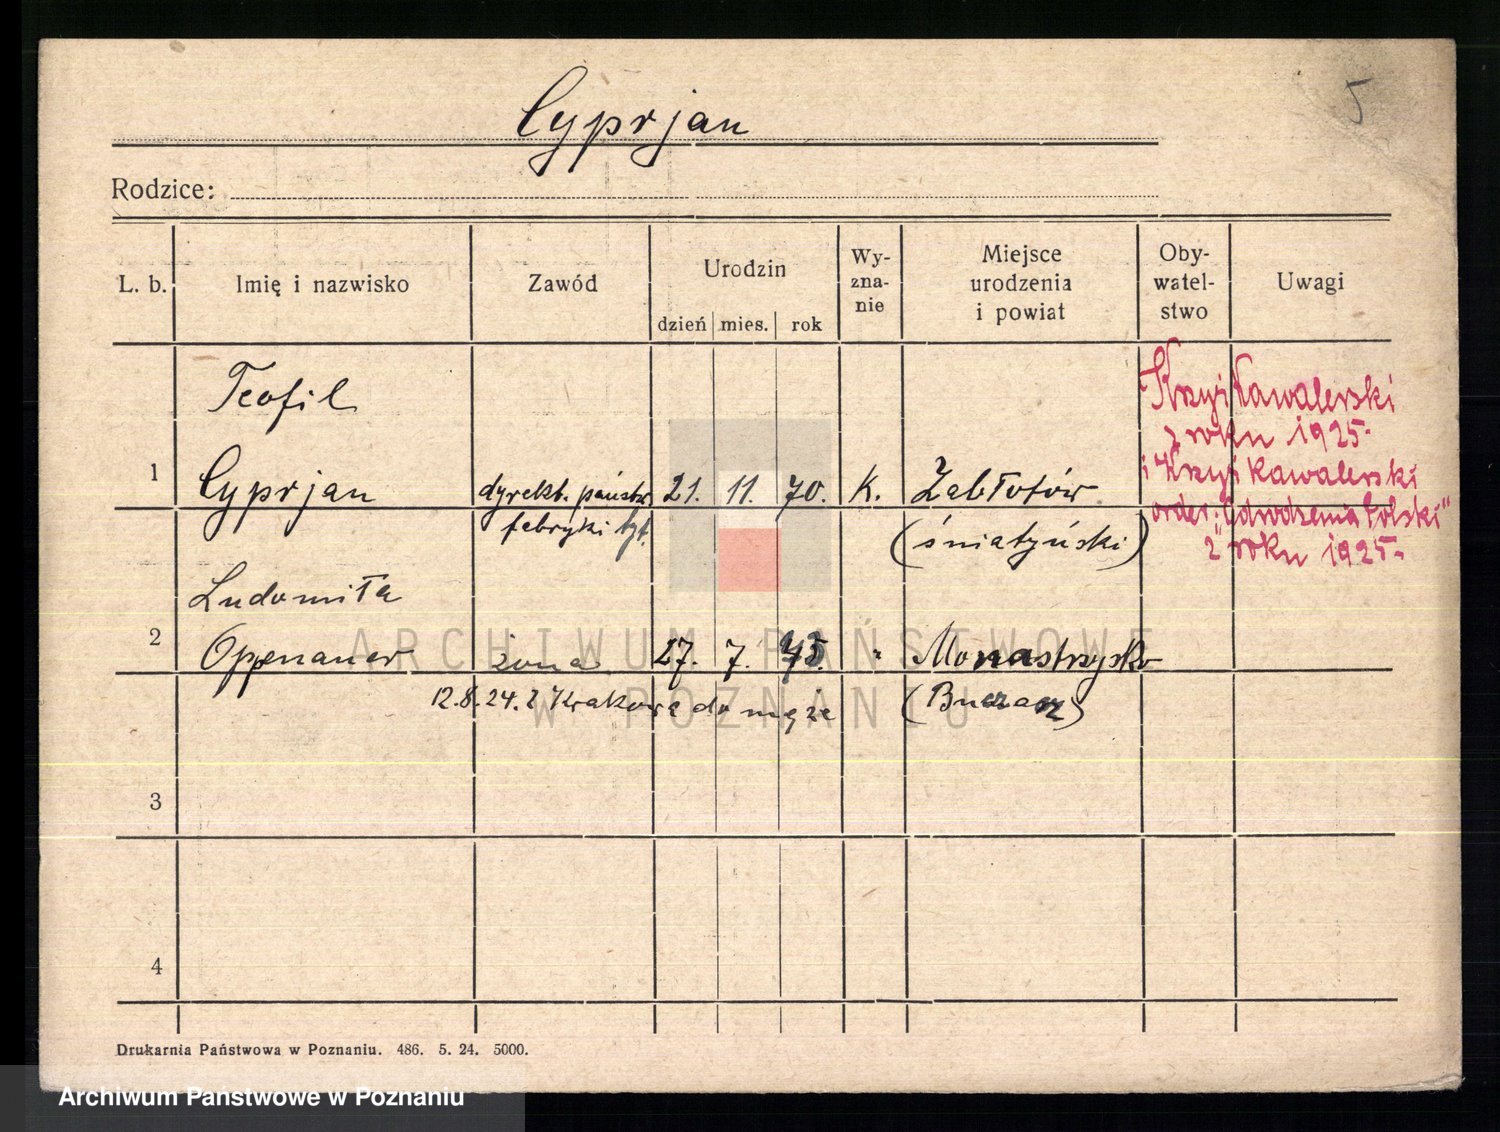 5
Cyprjan
Rodzice:
L. b.
Imię i nazwisko
Zawód
Urodzin
dzień mies. rok
Wy-
zna-
nie
Miejsce
urodzenia
i powiat
Oby-
watel-
stwo
Uwagi
Teofil
1 Cyprjan dyrekt. państw. 21. 11. 70. k. Zabłotów
fabryki tyt. (śniatyński)
Krzyż kawalerski
z roku 1925.
i Krzyż kawalerski
order. "Odrodzenia Polski"
z roku 1925.
Ludomiła
2 Oppenauer żona 27. 7. 75. " Monastrzysko
12.8.24. z Krakowa do męża (Buczacz)
3
4
Drukarnia Państwowa w Poznaniu. 486. 5. 24. 5000.
ARCHIWUM PAŃSTWOWE
W POZNANIU
Archiwum Państwowe w Poznaniu